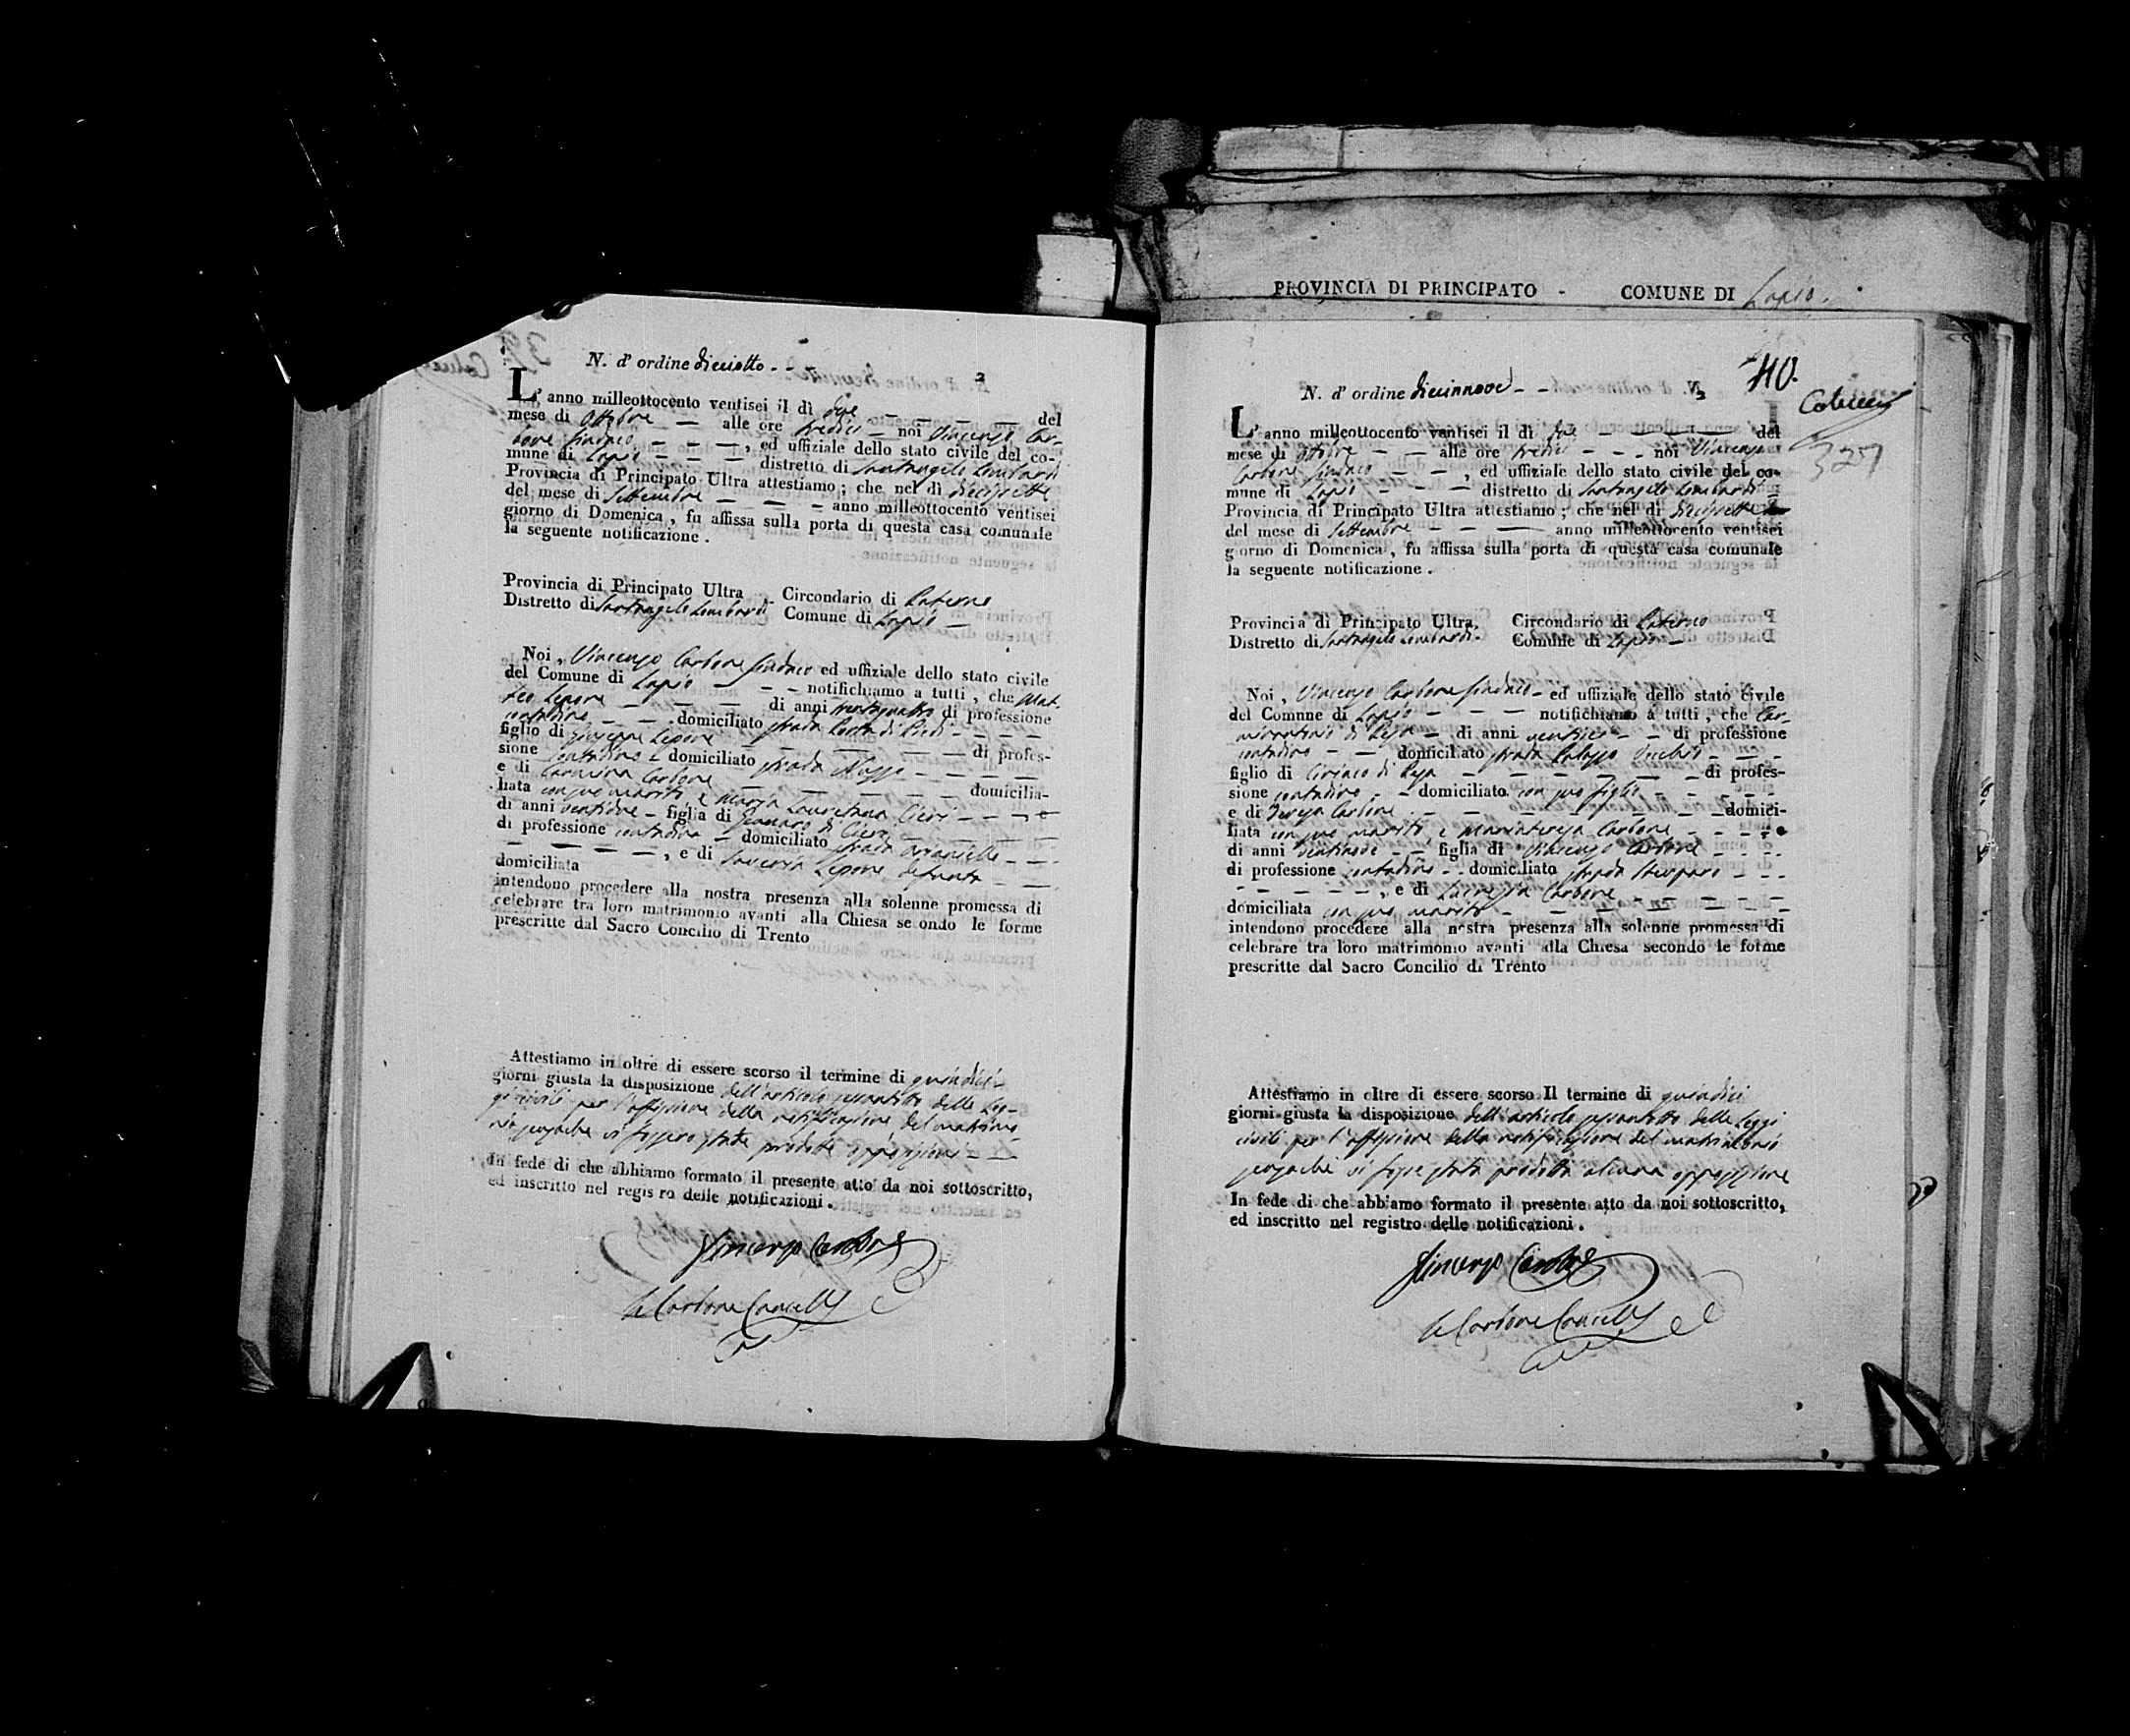 N. d' ordine dieciotto - -
L' anno milleottocento ventisei il dì due - - - - del
mese di Ottobre - alle ore tredici - noi Vincenzo Car-
bone Sindaco - - -, ed uffiziale dello stato civile del co-
mune di Lapio - - - distretto di Santangelo Lombardi
Provincia di Principato Ultra attestiamo; che nel dì diecisette
del mese di Settembre - - - anno milleottocento ventisei
giorno di Domenica, fu affissa sulla porta di questa casa comunale
la seguente notificazione.
Provincia di Principato Ultra Circondario di Paterno
Distretto di Santangelo Lombardi Comune di Lapio -
Noi, Vincenzo Carbone Sindaco ed uffiziale dello stato civile
del Comune di Lapio - - - notifichiamo a tutti, che Mat-
teo Lepore - - - di anni trentaquattro di professione
contadino - - domiciliato strada Porta di Piedi - - - -
figlio di Giuseppe Lepore - - - - - di profes-
sione contadino - domiciliato strada - - - - -
e di Carmina Carbone - - - - - domicilia-
liata con suo marito, e Maria Lauretana - - - e
di anni ventidue - figlia di Gennaro di - - -
di professione contadina - domiciliato strada - - -
- - - - -, e di Saveria Lepore defunta - -
domiciliata
intendono procedere alla nostra presenza alla solenne promessa di
celebrare tra loro matrimonio avanti alla Chiesa se ondo le forme
prescritte dal Sacro Concilio di Trento
Attestiamo in oltre di essere scorso il termine di quindici
giorni giusta la disposizione dell'articolo sessantotto delle Leg-
gi civili per l'affissione della notificazione del matrimo-
nio senzache vi fossero state prodotte opposizioni - -
In fede di che abbiamo formato il presente atto da noi sottoscritto,
ed inscritto nel regis ro delle notificazioni.
Vincenzo Carbone
Carbone Cancell
PROVINCIA DI PRINCIPATO - COMUNE DI Lapio.
40.
N. d' ordine diecinnove - -
327
L' anno milleottocento ventisei il dì due - - del
mese di Ottobre - - alle ore tredici - - - noi Vincenzo
Carbone Sindaco - -, ed uffiziale dello stato civile del co-
mune di Lapio - - - distretto di Santangelo Lombardi -
Provincia di Principato Ultra attestiamo; che nel dì diecisette
del mese di Settembre - - - anno milleottocento ventisei
g orno di Domenica, fu affissa sulla porta di questa casa comunale
la seguente notificazione.
Provincia di Principato Ultra, Circondario di Paterno
Distretto di Santangelo Lombardi. Comune di Lapio -
Noi, Vincenzo Carbone Sindaco - ed uffiziale dello stato civile
del Comune di Lapio - - - notifichiamo a tutti, che Car-
di anni ventisei - - di professione
contadino - - domiciliato strada Palazzo Ducale - - -
figlio di Ciriaco di - - - - - di profes-
sione contadino - - domiciliato con suo figlio - - - -
e di Teresa Carbone - - - - - domici-
liata con suo marito, e Mariateresa Carbone - - - e
di anni ventinove - - figlia di Vincenzo Carbone - - -
di professione contadino - - domiciliato strada - - -
- - - - -, e di Lucrezia Carbone - - - - -
domiciliata con suo marito - - - - - -
intendono procedere alla nostra presenza alla solenne promessa di
celebrare tra loro matrimonio avanti alla Chiesa secondo le forme
prescritte dal Sacro Concilio di Trento
Attestiamo in oltre di essere scorso Il termine di quindici
giorni giusta la disposizione dell'articolo sessantotto delle Leggi
civili per l'affissione della notificazione del matrimonio
senzache vi fosse stata prodotta alcuna opposizione
In fede di che abbiamo formato il presente atto da noi sottoscritto,
ed inscritto nel registro delle notificazioni.
Vincenzo Carbone
Carbone Cancell